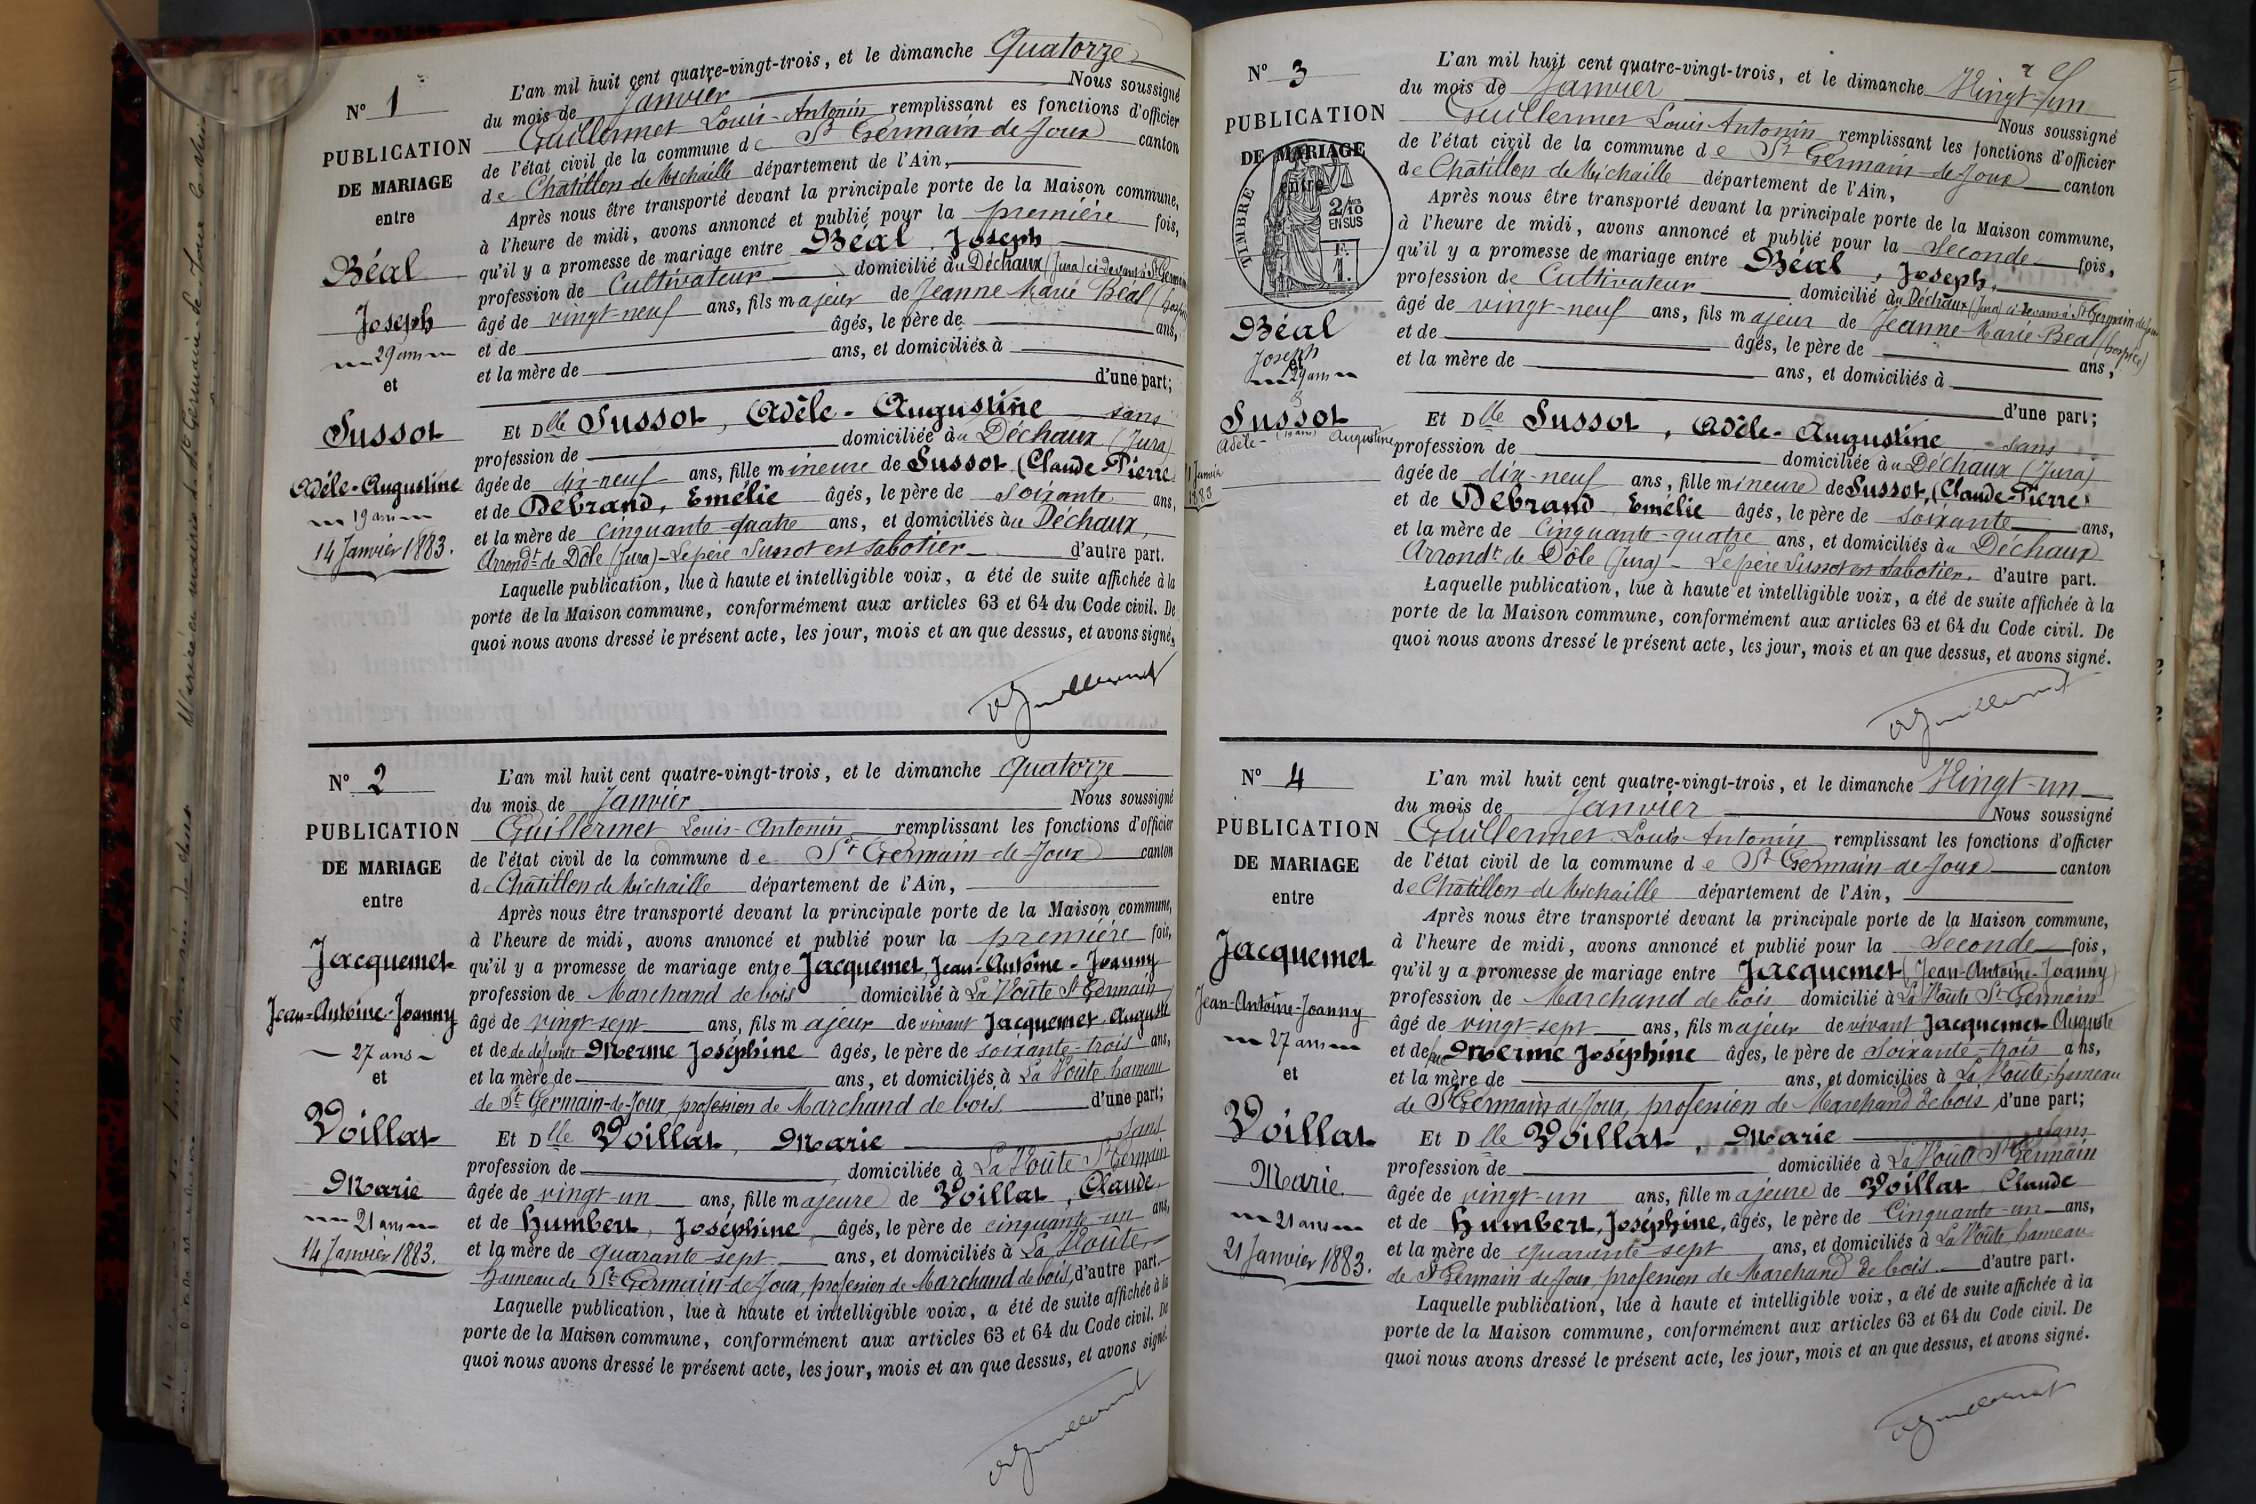 N° 1
PUBLICATION
DE MARIAGE
entre
Béal
Joseph
29 ans
et
Sussot
Adèle-Augustine
19 ans
14 Janvier 1883.
L'an mil huit cent quatre-vingt-trois, et le dimanche Quatorze
du mois de Janvier Nous soussigné
Guillermet Louis-Antonin remplissant es fonctions d'officier
de l'état civil de la commune de St Germain de Joux canton
de Chatillon de Michaille département de l'Ain,
Après nous être transporté devant la principale porte de la Maison commune,
à l'heure de midi, avons annoncé et publié pour la première fois,
qu'il y a promesse de mariage entre Béal, Joseph
profession de Cultivateur domicilié au Déchaux (Jura) ci-devant à St Germain
âgé de vingt-neuf ans, fils majeur de Jeanne Marie Béal (hospice
et de âgés, le père de ans,
et la mère de ans, et domiciliés à
d'une part;
Et Dlle Sussot, Adèle-Augustine sans
profession de domiciliée au Déchaux (Jura)
âgée de dix-neuf ans, fille mineure de Sussot, (Claude-Pierre
et de Debrand, Emélie âgés, le père de soixante ans,
et la mère de cinquante-quatre ans, et domiciliés au Déchaux,
Arrondt de Dôle (Jura) - Le père Sussot est sabotier - d'autre part.
Laquelle publication, lue à haute et intelligible voix, a été de suite affichée à la
porte de la Maison commune, conformément aux articles 63 et 64 du Code civil. De
quoi nous avons dressé le présent acte, les jour, mois et an que dessus, et avons signé,
Guillermet
N° 2
PUBLICATION
DE MARIAGE
entre
Jacquemet
Jean-Antoine-Joanny
27 ans
et
Voillat
Marie
21 ans
14 Janvier 1883.
L'an mil huit cent quatre-vingt-trois, et le dimanche quatorze
du mois de Janvier Nous soussigné
Guillermet Louis-Antonin remplissant les fonctions d'officier
de l'état civil de la commune de St Germain-de-Joux canton
de Chatillon de Michaille département de l'Ain,
Après nous être transporté devant la principale porte de la Maison commune,
à l'heure de midi, avons annoncé et publié pour la première fois,
qu'il y a promesse de mariage entre Jacquemet, Jean-Antoine-Joanny
profession de Marchand de bois domicilié à La Voûte St Germain
âgé de vingt-sept ans, fils majeur de vivant Jacquemet Auguste
et de de défunte Merme Joséphine âgés, le père de soixante-trois ans,
et la mère de ans, et domiciliés à La Voûte hameau
de St Germain-de-Joux, profession de Marchand de bois. d'une part;
Et Dlle Voillat, Marie sans
profession de domiciliée à La Voûte St Germain
âgée de vingt-un ans, fille majeure de Voillat, Claude
et de Humbert, Joséphine âgés, le père de cinquante-un ans,
et la mère de quarante sept ans, et domiciliés à La Voûte
hameau de St Germain-de-Joux, profession de Marchand de bois, d'autre part.
Laquelle publication, lue à haute et intelligible voix, a été de suite affichée à la
porte de la Maison commune, conformément aux articles 63 et 64 du Code civil. De
quoi nous avons dressé le présent acte, les jour, mois et an que dessus, et avons signé.
Guillermet
N° 3
PUBLICATION
DE MARIAGE
entre
TIMBRE
2/10
EN SUS
F.
1.
Béal
Joseph
et
29 ans
Sussot
Adèle- (19 ans) Augustine
21 Janvier
1883
L'an mil huit cent quatre-vingt-trois, et le dimanche Vingt-Un
du mois de Janvier
Nous soussigné
Guillermet Louis Antonin remplissant les fonctions d'officier
de l'état civil de la commune de St Germain-de-Joux canton
de Chatillon de Michaille département de l'Ain,
Après nous être transporté devant la principale porte de la Maison commune,
à l'heure de midi, avons annoncé et publié pour la Seconde fois,
qu'il y a promesse de mariage entre Béal, Joseph,
profession de Cultivateur domicilié au Déchaux (Jura) ci-devant à St Germain de Joux
âgé de vingt-neuf ans, fils majeur de Jeanne Marie Béal (hospice)
et de âgés, le père de ans,
et la mère de ans, et domiciliés à
d'une part;
Et Dlle Sussot, Adèle-Augustine sans
profession de domiciliée au Déchaux (Jura)
âgée de dix-neuf ans, fille mineure de Sussot, (Claude-Pierre)
et de Debrand, Emélie âgés, le père de soixante ans,
et la mère de cinquante-quatre ans, et domiciliés au Déchaux
Arrondt de Dôle (Jura) - Le père Sussot est sabotier. d'autre part.
Laquelle publication, lue à haute et intelligible voix, a été de suite affichée à la
porte de la Maison commune, conformément aux articles 63 et 64 du Code civil. De
quoi nous avons dressé le présent acte, les jour, mois et an que dessus, et avons signé.
Guillermet
N° 4
PUBLICATION
DE MARIAGE
entre
Jacquemet
Jean-Antoine-Joanny
27 ans
et
Voillat
Marie
21 ans
21 Janvier 1883.
L'an mil huit cent quatre-vingt-trois, et le dimanche Vingt-un
du mois de Janvier Nous soussigné
Guillermet Louis Antonin remplissant les fonctions d'officier
de l'état civil de la commune de St Germain-de-Joux canton
de Chatillon-de-Michaille département de l'Ain,
Après nous être transporté devant la principale porte de la Maison commune,
à l'heure de midi, avons annoncé et publié pour la Seconde fois,
qu'il y a promesse de mariage entre Jacquemet (Jean-Antoine-Joanny)
profession de Marchand de bois domicilié à La Voûte St Germain
âgé de vingt sept ans, fils majeur de vivant Jacquemet Auguste
et de fue Merme Joséphine âgés, le père de Soixante-trois ans,
et la mère de ans, et domiciliés à La Voute, hameau
de St Germain de Joux, profession de Marchand de bois, d'une part;
Et Dlle Voillat, Marie sans
profession de domiciliée à La Voûte St Germain
âgée de vingt-un ans, fille majeure de Voillat Claude
et de Humbert, Joséphine, âgés, le père de Cinquante-un ans,
et la mère de quarante sept ans, et domiciliés à La Voûte, hameau
de St Germain de Joux, profession de Marchand de bois. d'autre part.
Laquelle publication, lue à haute et intelligible voix, a été de suite affichée à la
porte de la Maison commune, conformément aux articles 63 et 64 du Code civil. De
quoi nous avons dressé le présent acte, les jour, mois et an que dessus, et avons signé.
Guillermet